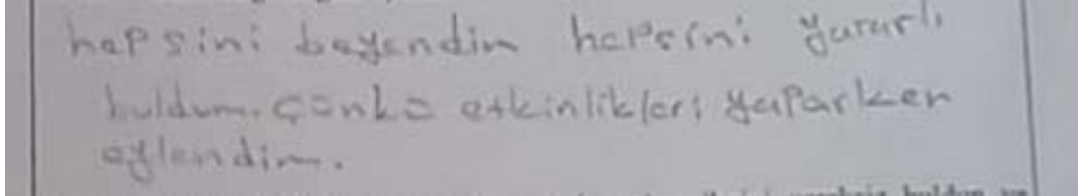 hepsini beğendim hepsini yararlı
buldum. Çünkü etkinlikleri yaparken
eğlendim.